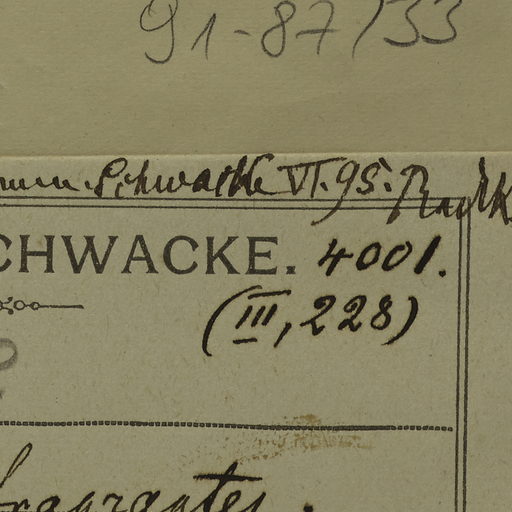 91-87/33
Schwacke VI. 95.
CHWACKE. 4001.
(III, 228)
fragrantes.